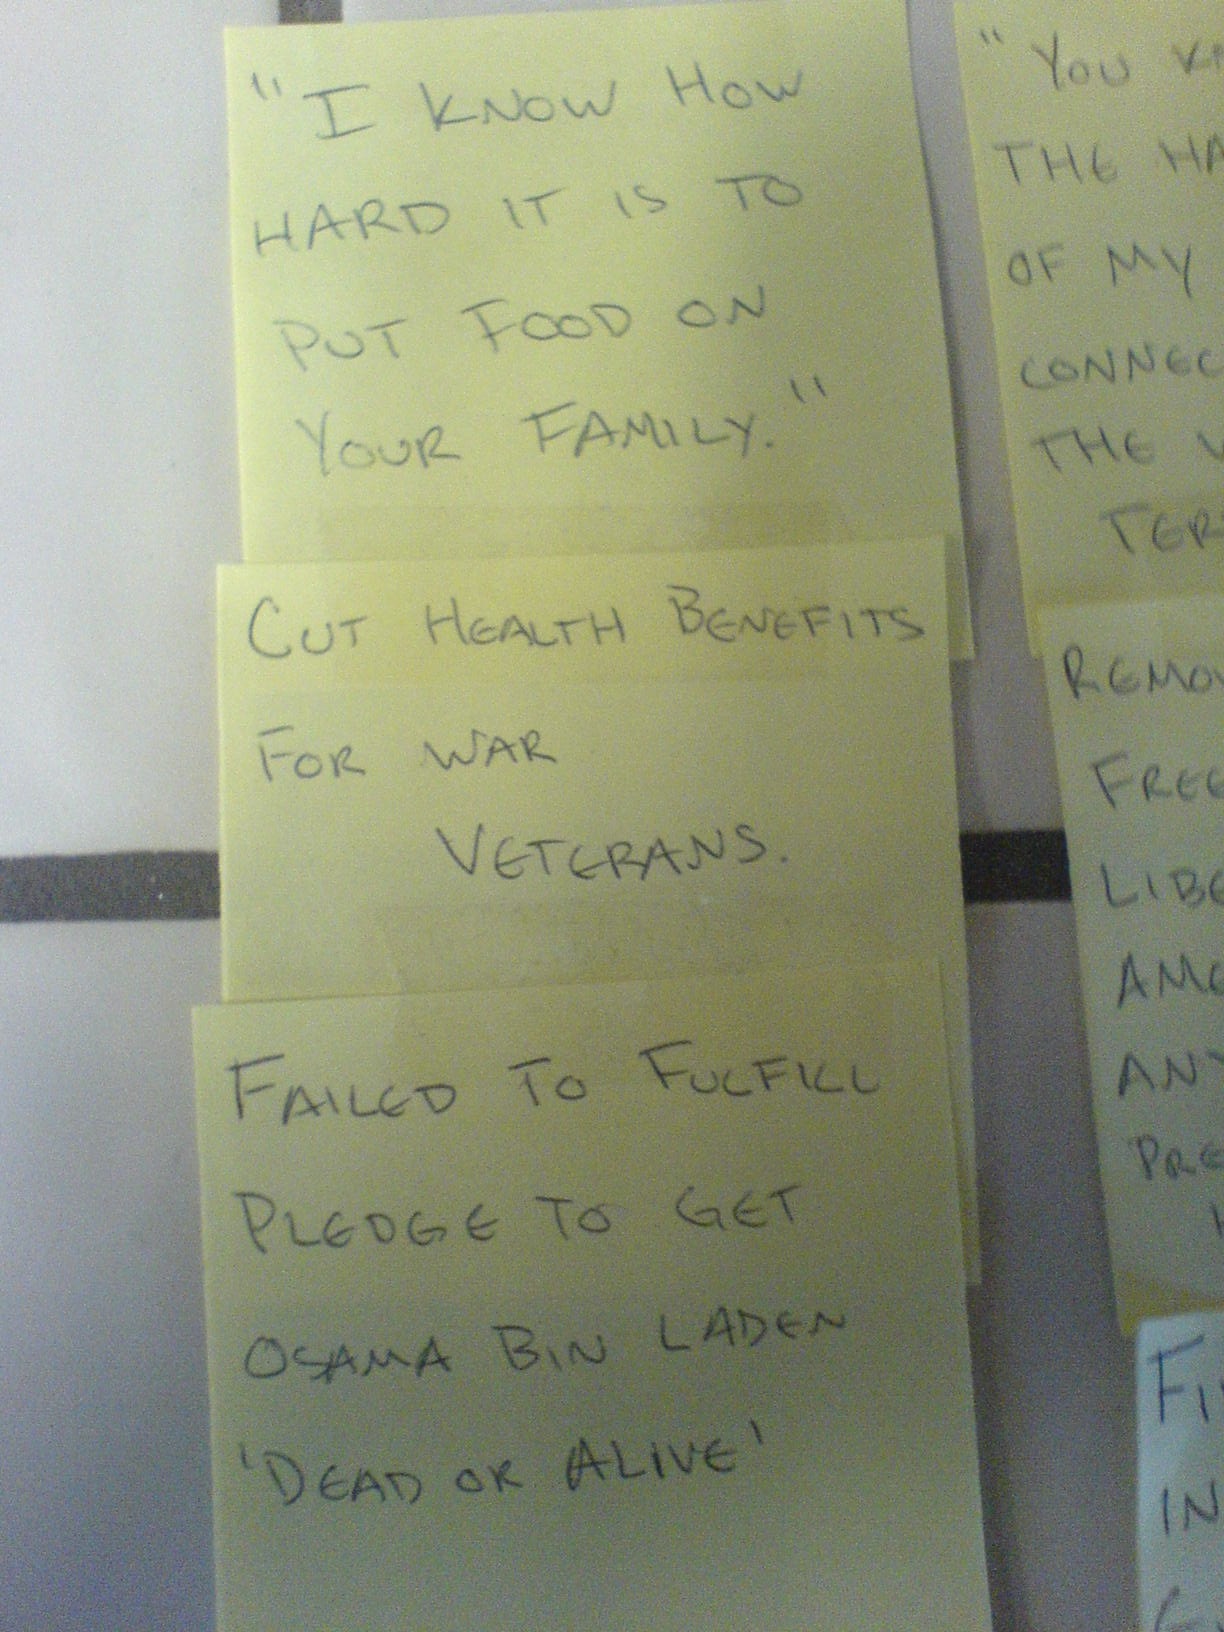 "I KNOW HOW
HARD IT IS TO
PUT FOOD ON
YOUR FAMILY."
CUT HEALTH BENEFITS
FOR WAR
VETERANS.
FAILED TO FULFILL
PLEDGE TO GET
OSAMA BIN LADEN
'DEAD OR ALIVE'
"YOU
THE
OF MY
THE